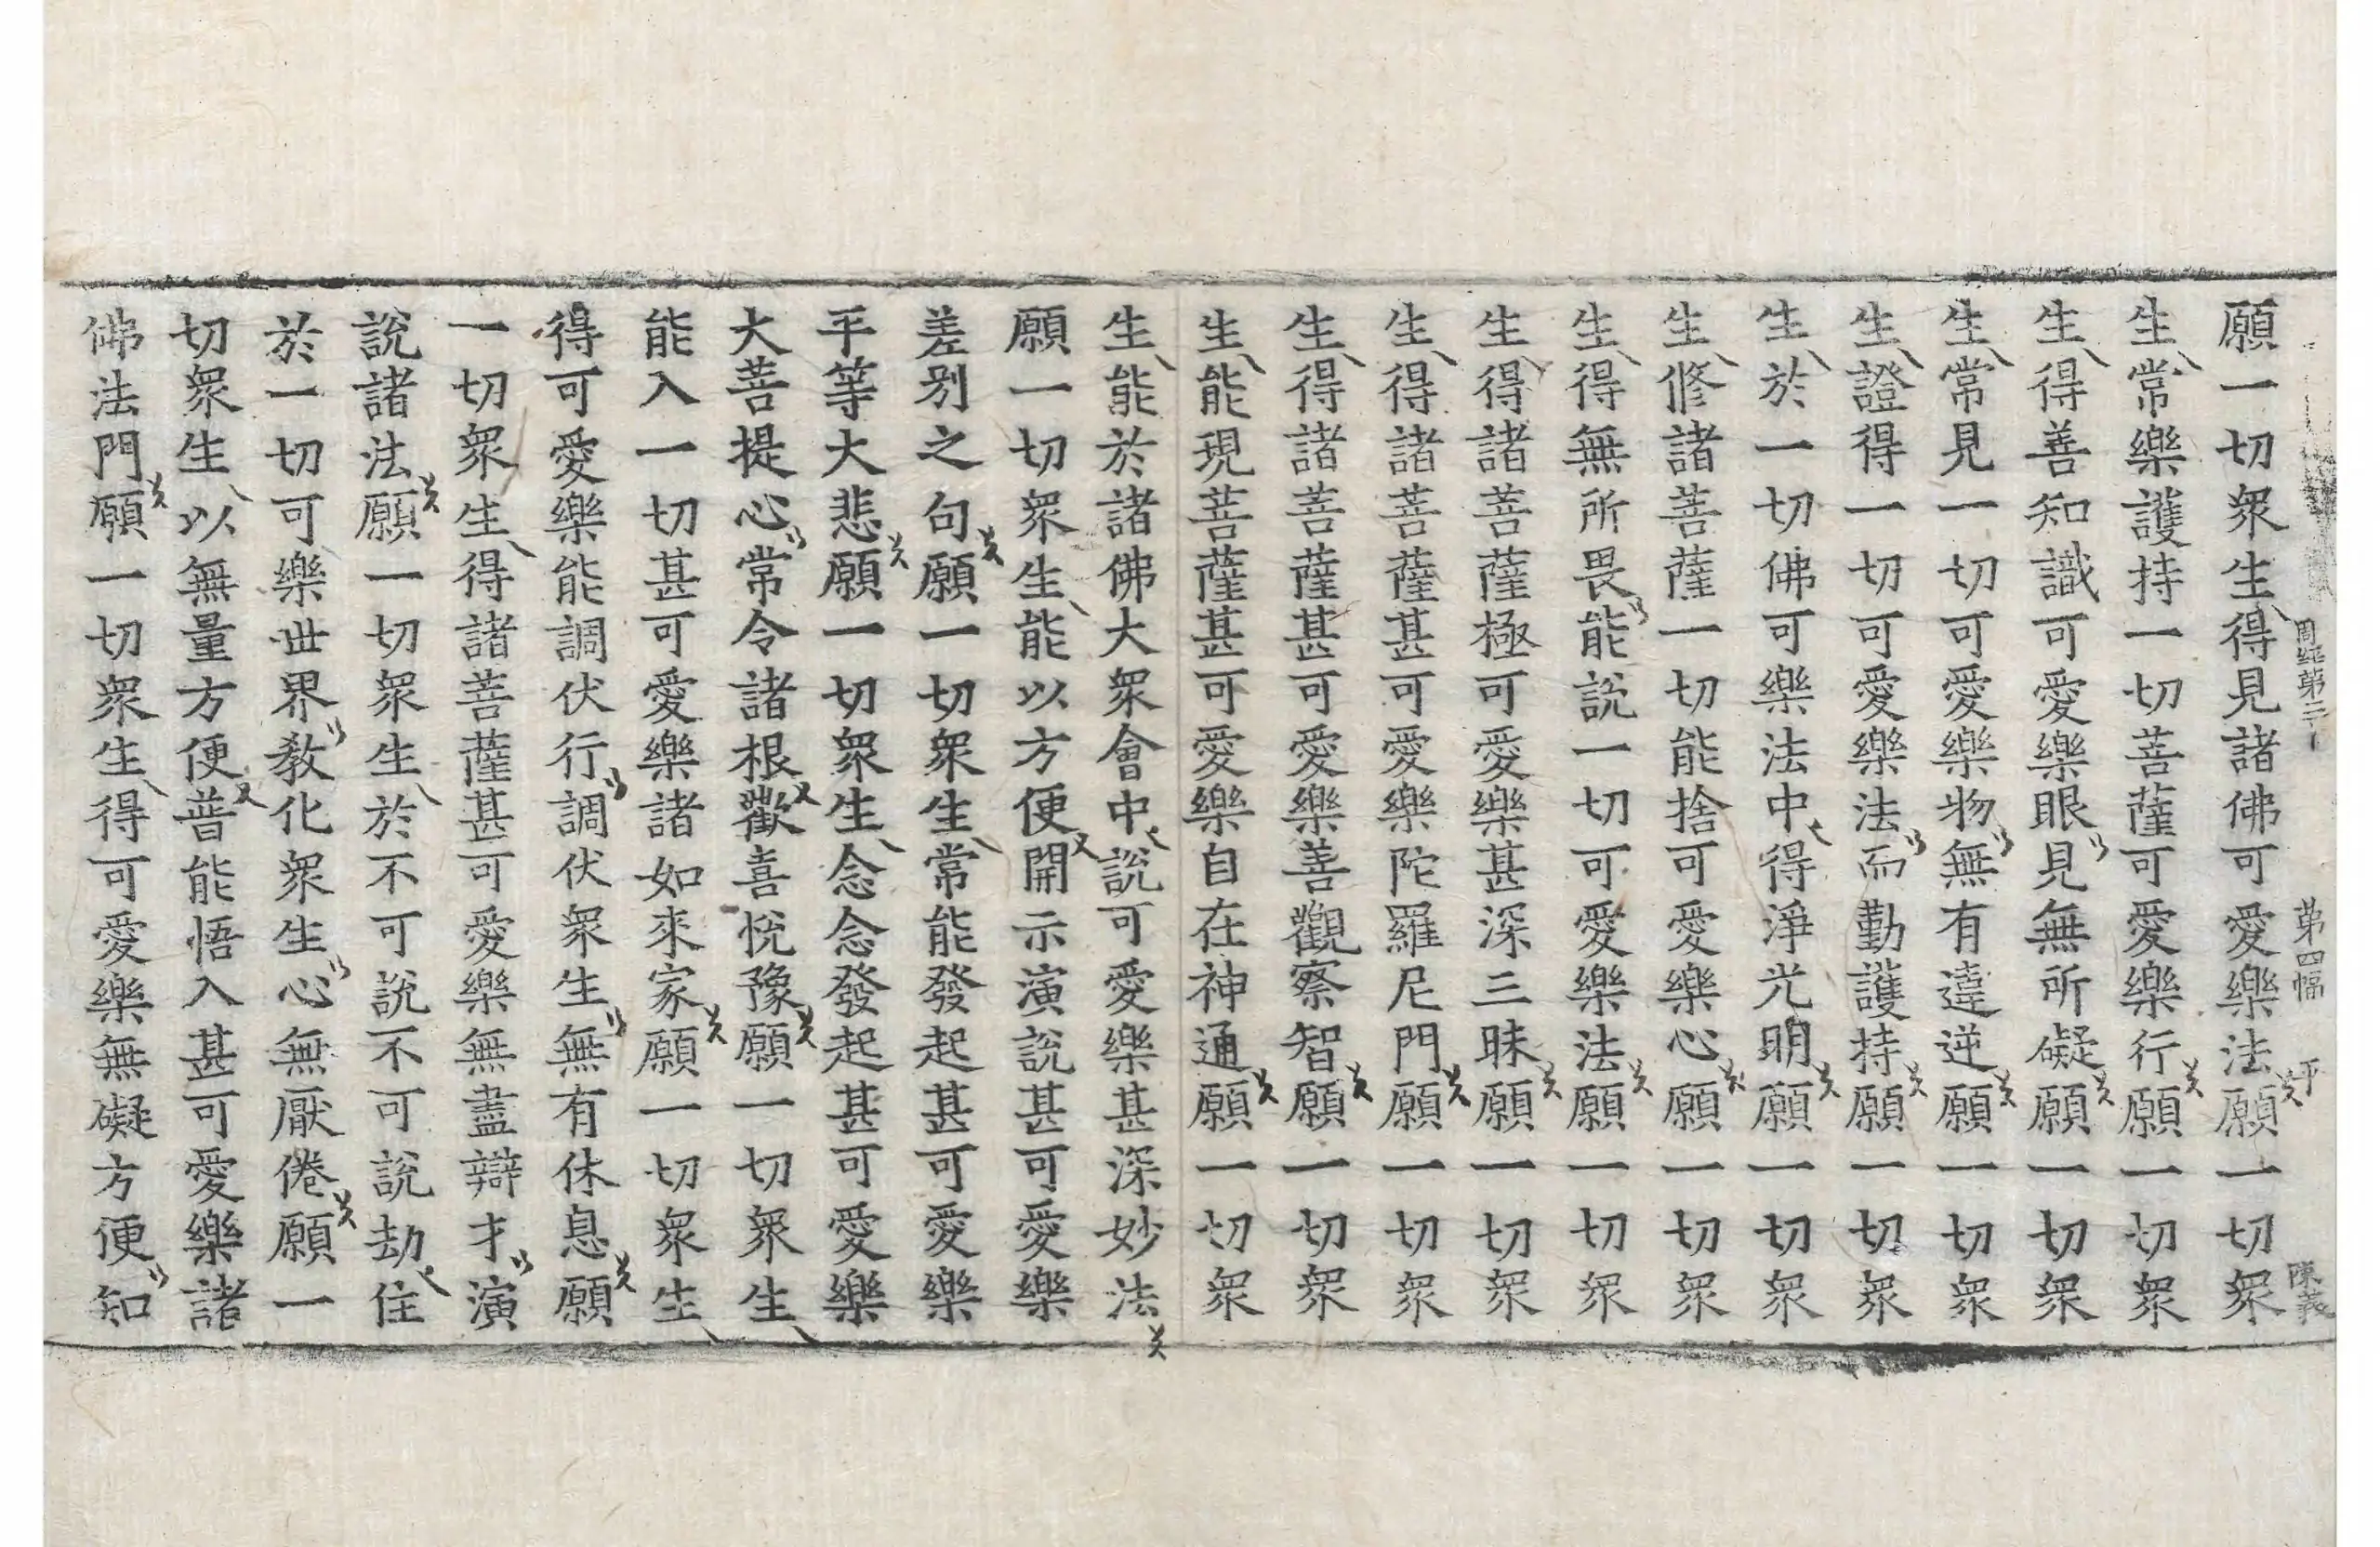 周經第三十 第四幅 平 陳義
願一切衆生得見諸佛可愛樂法願一切衆
生常樂護持一切菩薩可愛樂行願一切衆
生得善知識可愛樂眼見無所礙願一切衆
生常見一切可愛樂物無有違逆願一切衆
生證得一切可愛樂法而勤護持願一切衆
生於一切佛可樂法中得淨光明願一切衆
生修諸菩薩一切能捨可愛樂心願一切衆
生得無所畏能說一切可愛樂法願一切衆
生得諸菩薩極可愛樂甚深三昧願一切衆
生得諸菩薩甚可愛樂陀羅尼門願一切衆
生得諸菩薩甚可愛樂善觀察智願一切衆
生能現菩薩甚可愛樂自在神通願一切衆
生能於諸佛大衆會中說可愛樂甚深妙法
願一切衆生能以方便開示演說甚可愛樂
差別之句願一切衆生常能發起甚可愛樂
平等大悲願一切衆生念念發起甚可愛樂
大菩提心常令諸根歡喜悅豫願一切衆生
能入一切甚可愛樂諸如來家願一切衆生
得可愛樂能調伏行調伏衆生無有休息願
一切衆生得諸菩薩甚可愛樂無盡辯才演
說諸法願一切衆生於不可說不可說劫住
於一切可樂世界教化衆生心無厭倦願一
切衆生以無量方便普能悟入甚可愛樂諸
佛法門願一切衆生得可愛樂無礙方便知